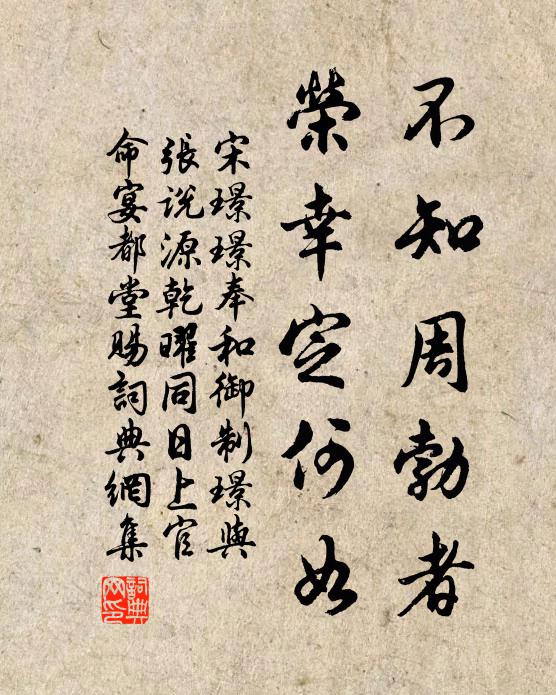 不知周勃者
榮幸定何如
宋璟璟奉和御制璟與
張說源乾曜同日上官
命宴都堂賜詞典網集
詞典網印